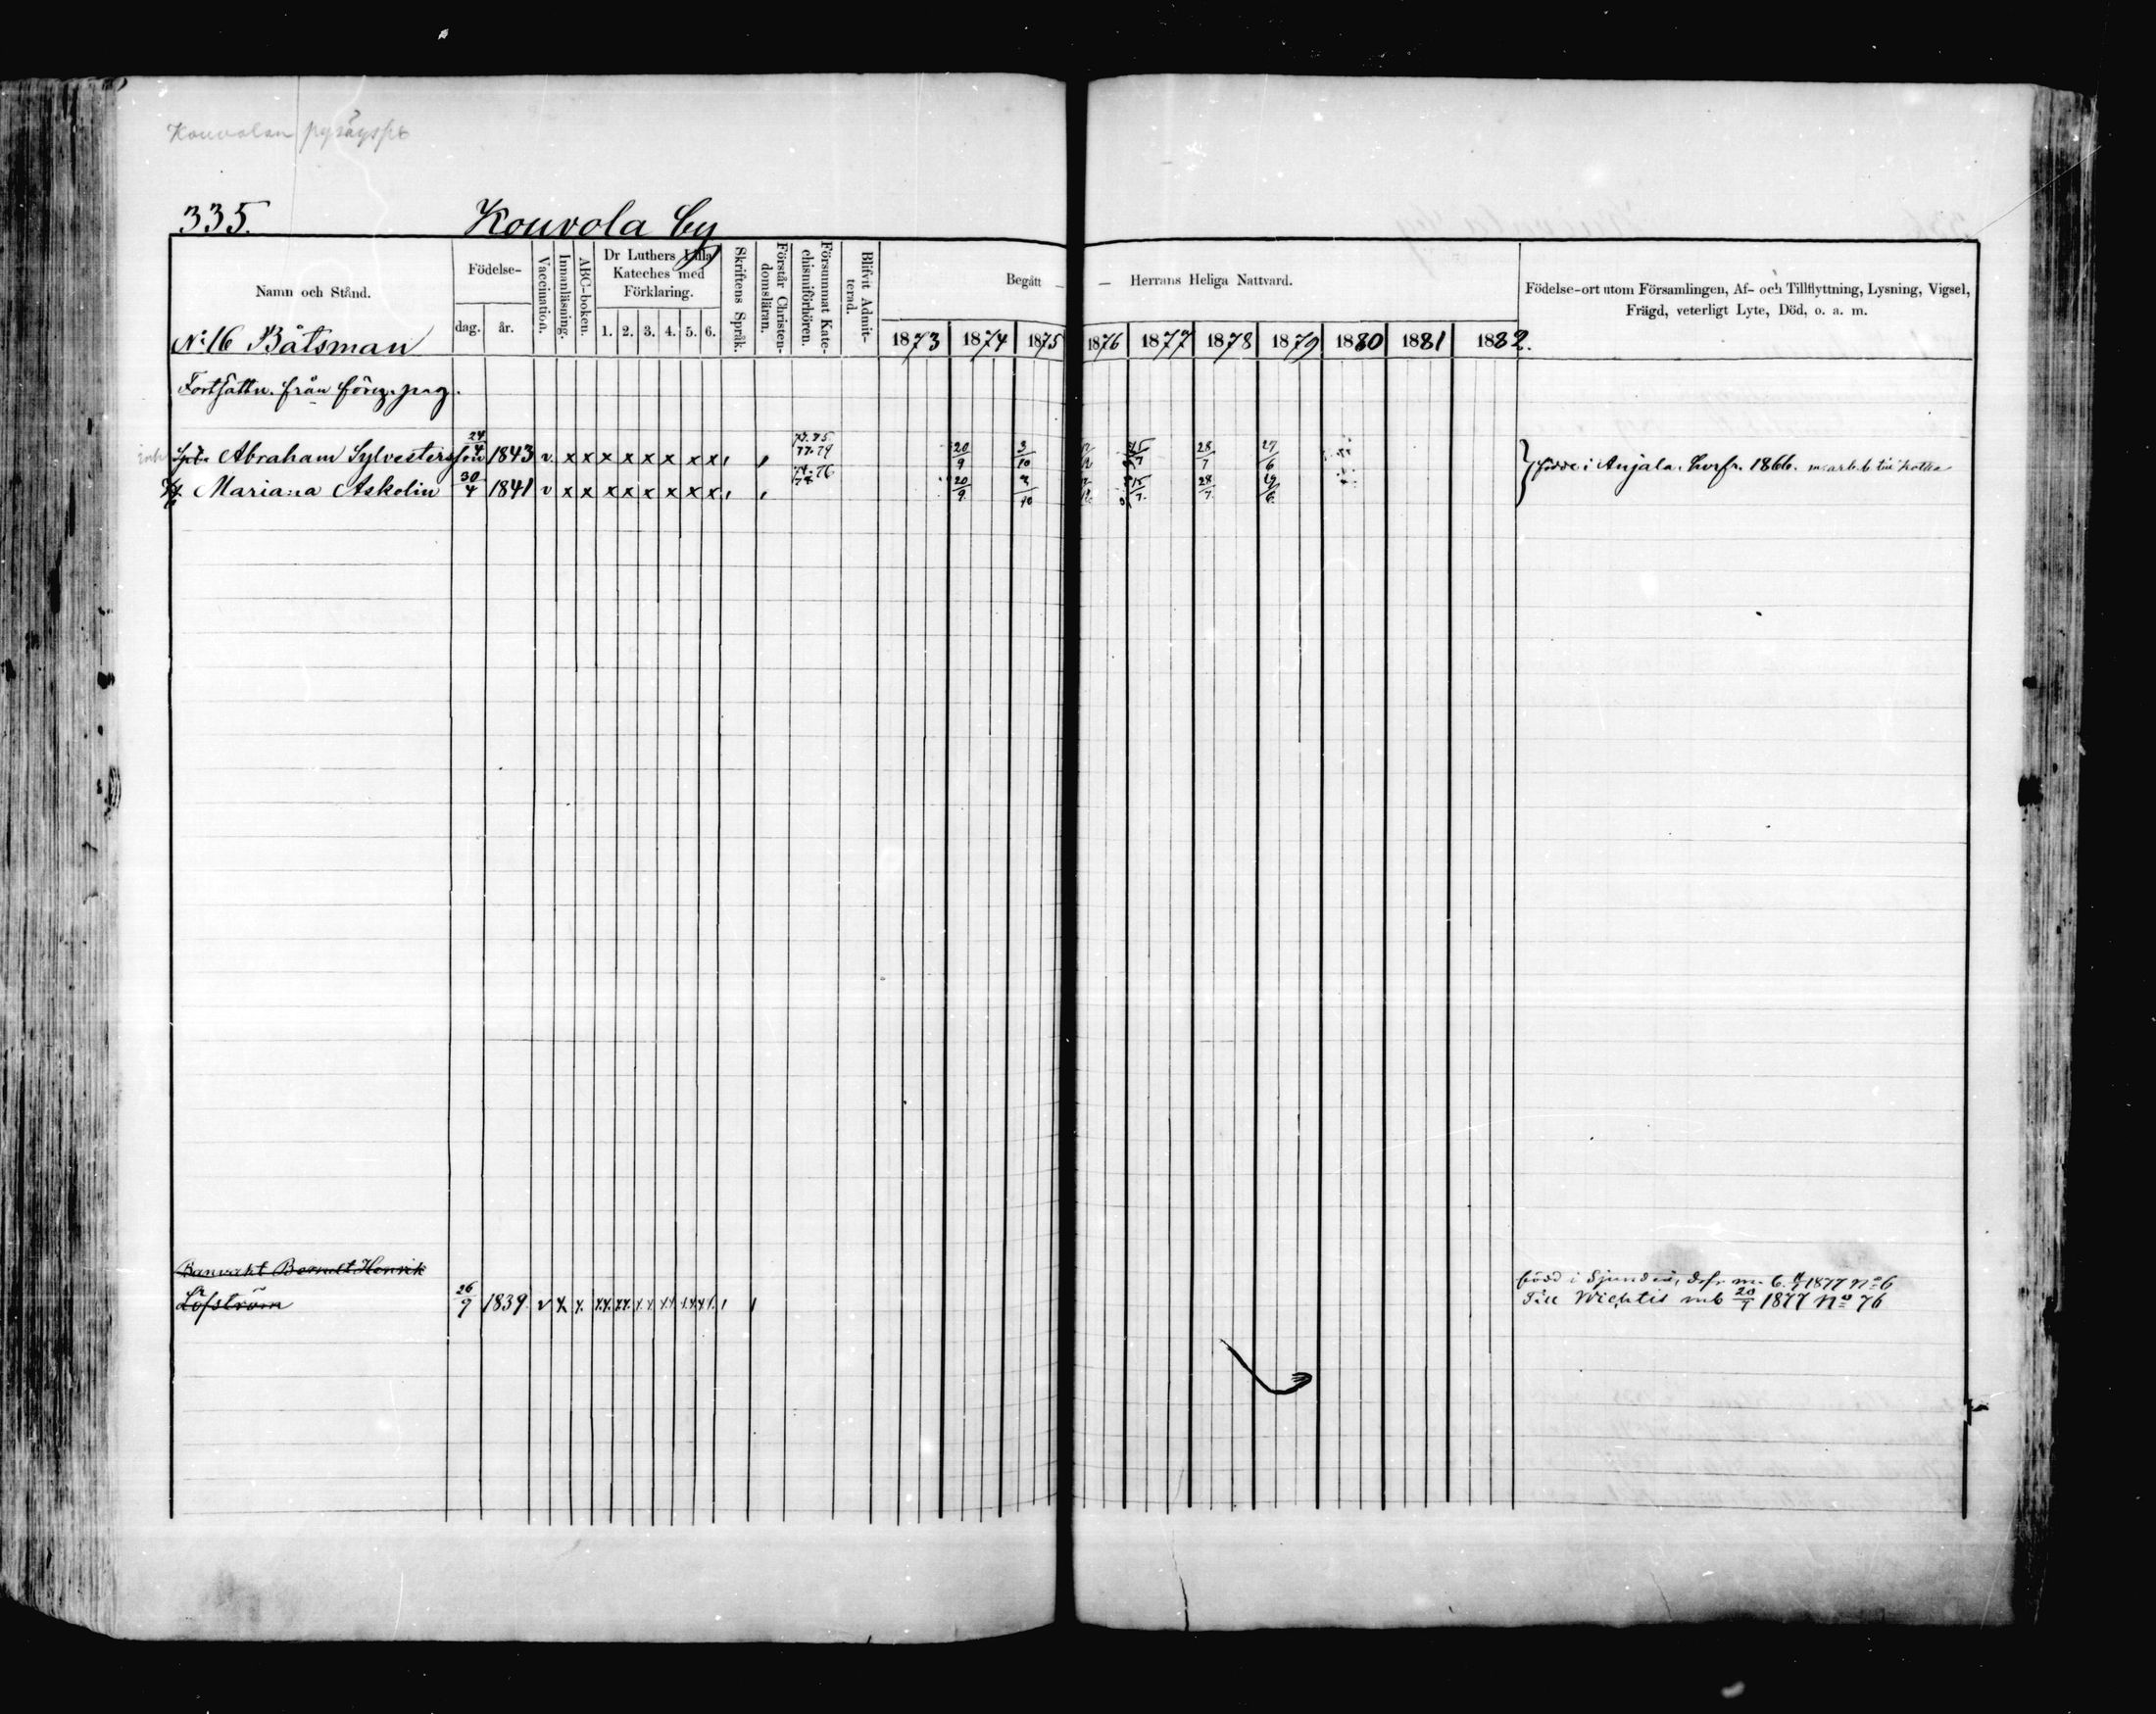 Kouvolan
335. Kouvola by
Namn och Stånd.
Födelse-
dag. år.
Vaccination.
Innanläsning.
ABC-boken.
Dr Luthers Lilla
Kateches med
Förklaring.
1. 2. 3. 4. 5. 6.
Skriftens Språk.
Förstår Christen-
domsläran.
Försummat Kate-
chismiförhören.
Blifvit Admit-
terad.
Begått — — Herrans Heliga Nattvard.
1873 1874 1875 1876 1877 1878 1879 1880 1881 1882.
Födelse-ort utom Församlingen, Af- och Tillflyttning, Lysning, Vigsel,
Frägd, veterligt Lyte, Död, o. a. m.
No 16 Båtsman
Fortsättn. från föreg. pag.
Abraham Sylvestersson 24/4 1843 v x x x x x x x x 77.79 20/9 3/10 15/7 28/7 27/6 födde i Anjala. 1866.
Mariana Askolin 30/4 1841 v x x x x x x x x 20/9 3/10 15/7 28/7
Banvakt Berndt Henrik född i Sjundeå, 1877 No 6
Löfström 26/9 1839. v x x. Till Wichtis mb 20/9 1877 No 76